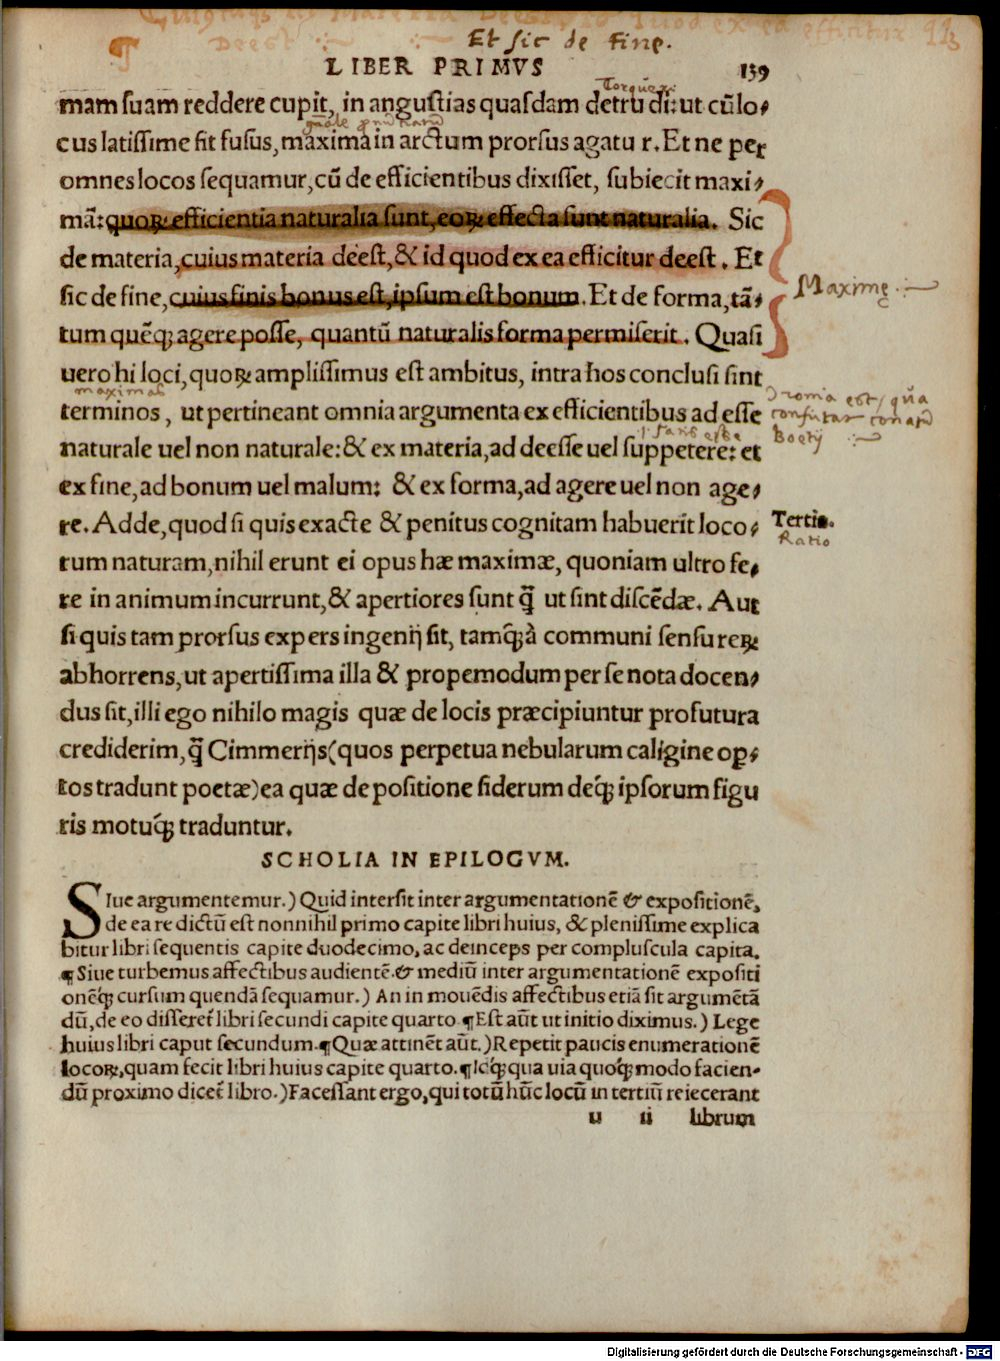 Et sic de fine.
LIBER PRIMVS 139
mam suam reddere cupit, in angustias quasdam detrudi: ut cũ lo-
cus latissime sit fusus, maxima in arctum prorsus agatur. Et ne per
omnes locos sequamur, cũ de efficientibus dixisset, subiecit maxi-
mã: quorꝝ efficientia naturalia sunt, eorꝝ effecta sunt naturalia. Sic
de materia, cuius materia deest, & id quod ex ea efficitur deest. Et
sic de fine, cuius finis bonus est, ipsum est bonum. Et de forma, tã-
tum quẽq; agere posse, quantũ naturalis forma permiserit. Quasi
Maximę
uero hi loci, quoꝝ amplissimus est ambitus, intra hos conclusi sint
maximas
terminos, ut pertineant omnia argumenta ex efficientibus ad esse
naturale uel non naturale: & ex materia, ad deesse uel suppetere: et
ex fine, ad bonum uel malum: & ex forma, ad agere uel non age-
re. Adde, quod si quis exacte & penitus cognitam habuerit loco-
Tertia.
Ratio
rum naturam, nihil erunt ei opus hæ maximæ, quoniam ultro fe-
re in animum incurrunt, & apertiores sunt q̃ ut sint discẽdæ. Aut
si quis tam prorsus expers ingenij sit, tamq́; à communi sensu reꝝ
abhorrens, ut apertissima illa & propemodum per se nota docen-
dus sit, illi ego nihilo magis quæ de locis præcipiuntur profutura
crediderim, q̃ Cimmerijs (quos perpetua nebularum caligine op-
tos tradunt poetæ) ea quæ de positione siderum deq́; ipsorum figu
ris motuq́; traduntur.
SCHOLIA IN EPILOGVM.
SIue argumentemur.) Quid intersit inter argumentationẽ & expositionẽ,
de ea re dictũ est nonnihil primo capite libri huius, & plenissime explica
bitur libri sequentis capite duodecimo, ac deinceps per compluscula capita.
¶ Siue turbemus affectibus audientẽ & mediũ inter argumentationẽ expositi
onẽq́; cursum quendã sequamur.) An in mouẽdis affectibus etiã sit argumẽtã
dũ, de eo disseret̃ libri secundi capite quarto. ¶ Est aũt ut initio diximus.) Lege
huius libri caput secundum. ¶ Quæ attinẽt aũt.) Repetit paucis enumerationẽ
locoꝝ, quam fecit libri huius capite quarto. ¶ Icq́; qua uia quoq́; modo facien-
dũ proximo dicet̃ libro.) Facessant ergo, qui totũ hũc locũ in tertiũ reiecerant
u ii librum
Digitalisierung gefördert durch die Deutsche Forschungsgemeinschaft - DFG